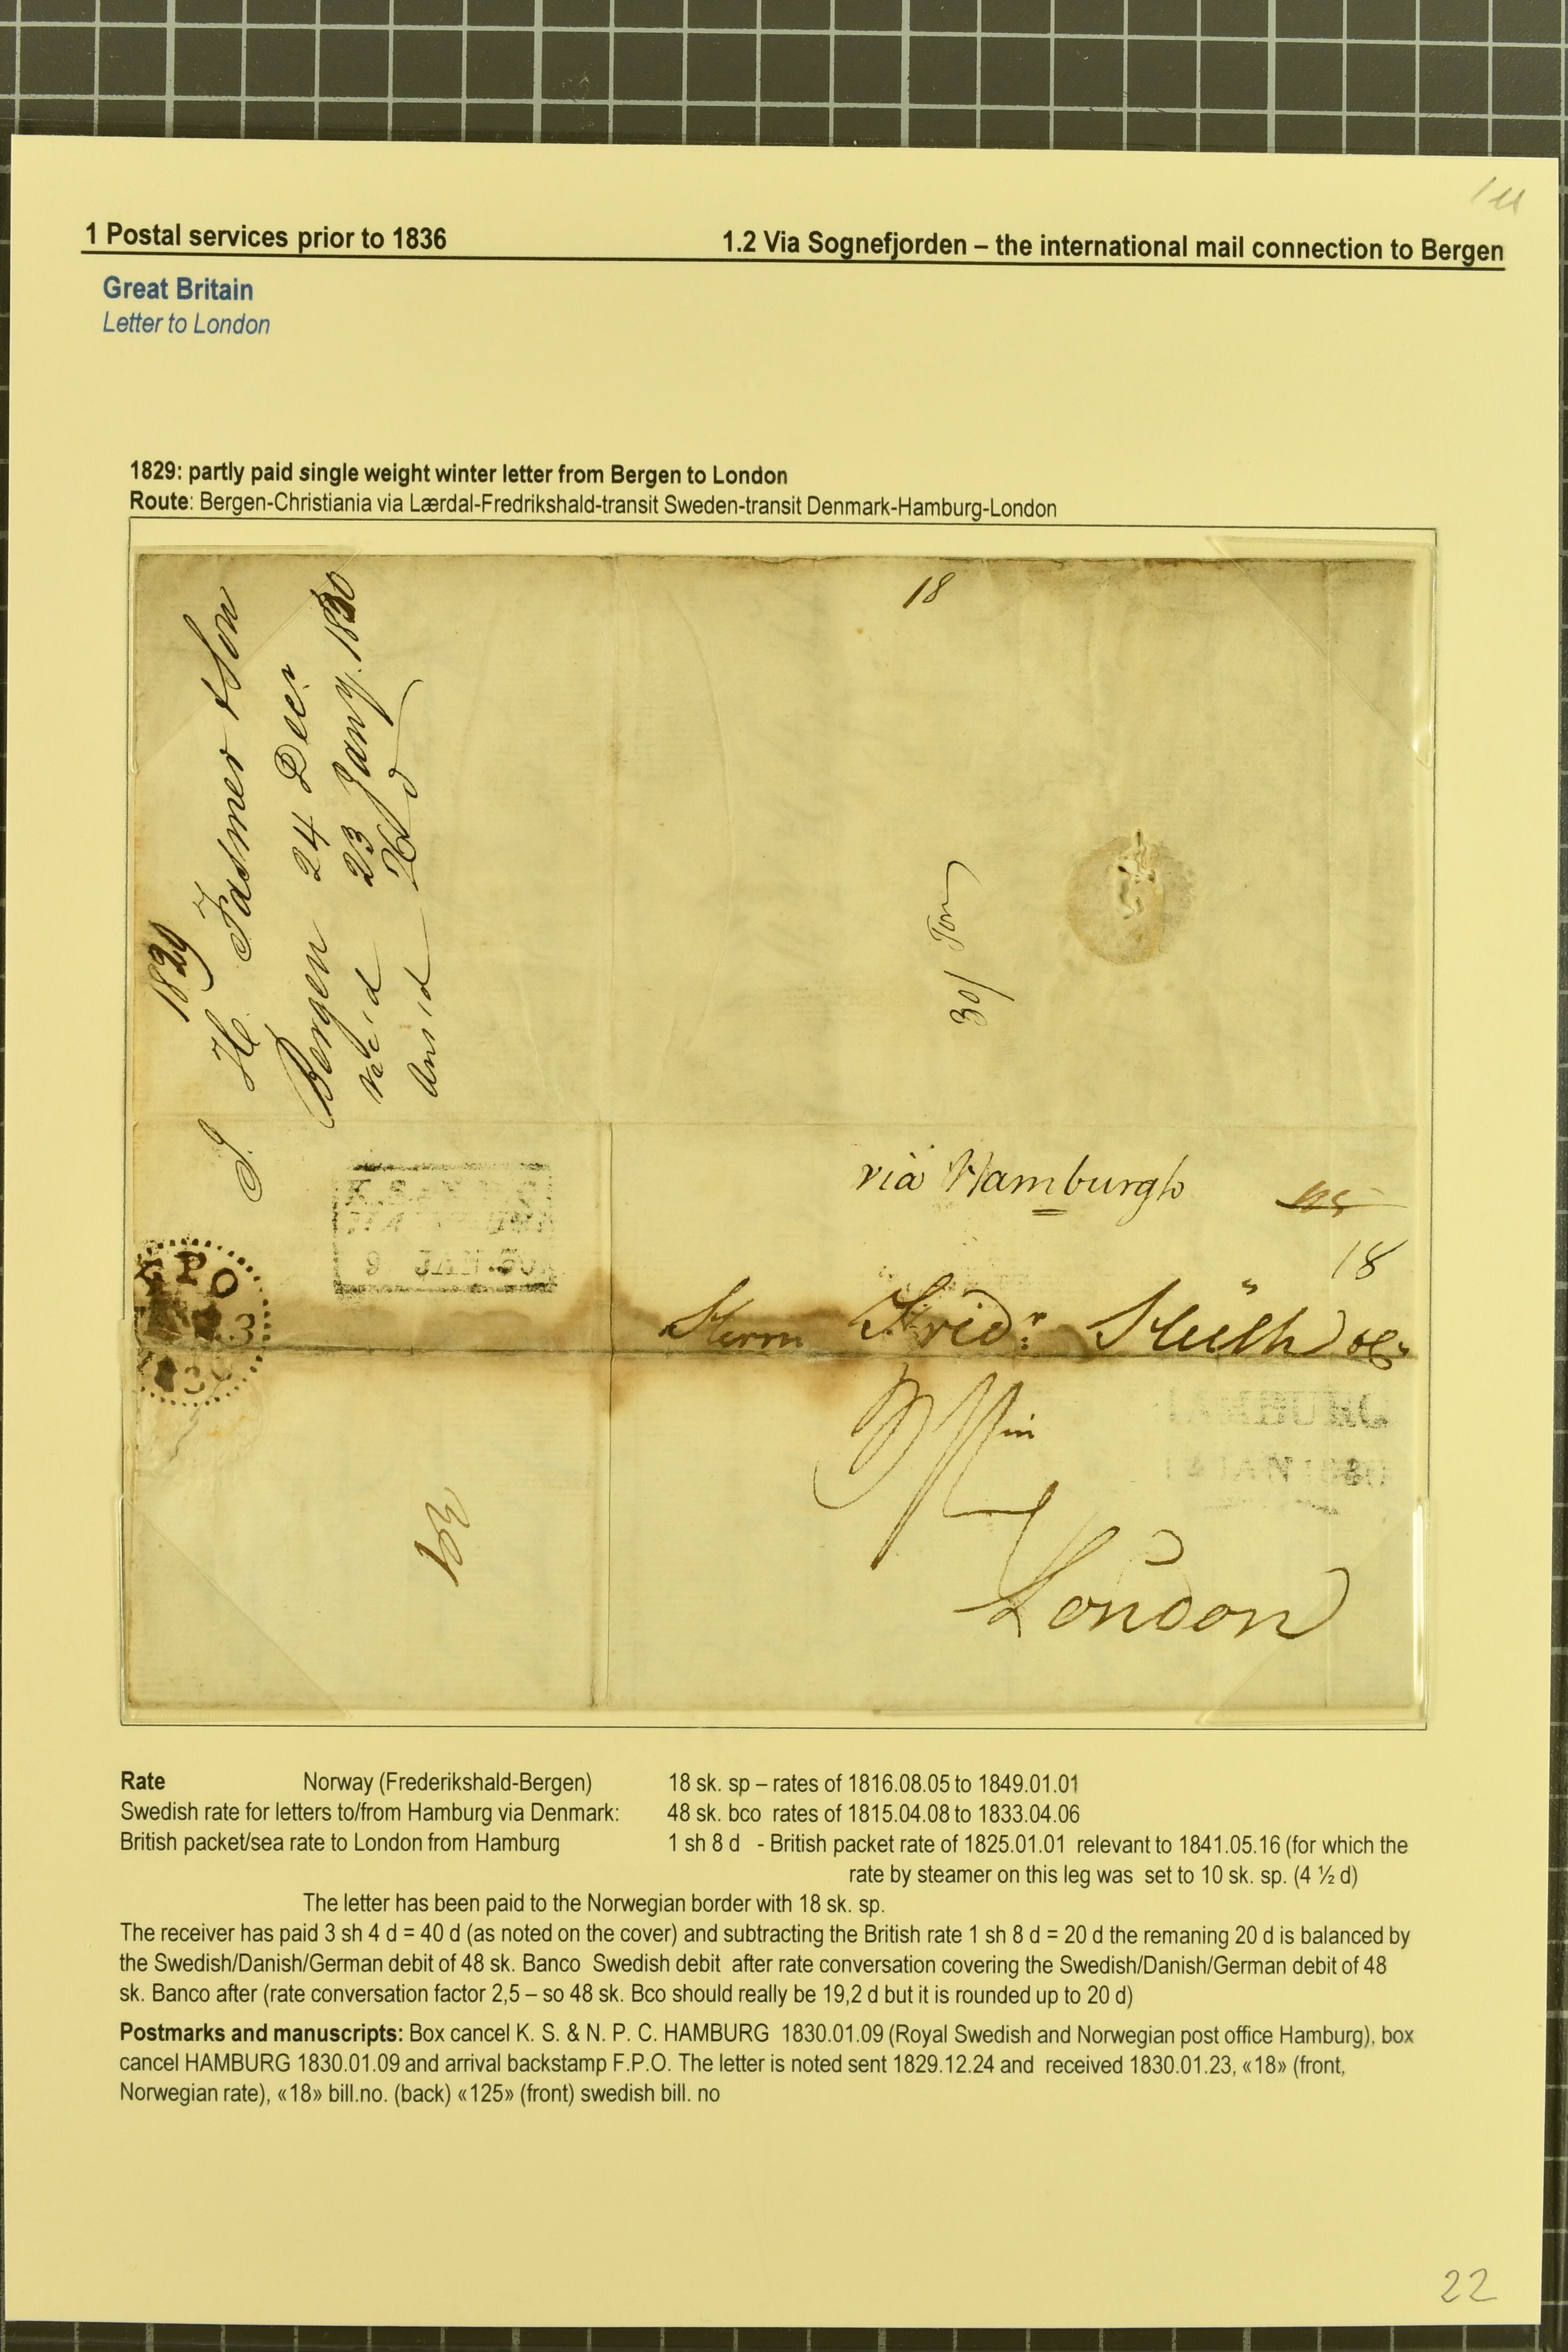 1 Postal services prior to 1836
1.2 Via Sognefjorden – the international mail connection to Bergen
Great Britain
Letter to London
1829: partly paid single weight winter letter from Bergen to London
Route: Bergen-Christiania via Lærdal-Fredrikshald-transit Sweden-transit Denmark-Hamburg-London
18
1829
J. H. Fasmer & Son
Bergen 24 Decr.
23 Jany. 1830
26
via Hamburgh
18
K.S. & N.P.C.
HAMBURG
9 JAN. 30
FPO
Herrn Fridr. Hüth &
HAMBURG
JAN 1830
London
Rate Norway (Frederikshald-Bergen) 18 sk. sp – rates of 1816.08.05 to 1849.01.01
Swedish rate for letters to/from Hamburg via Denmark: 48 sk. bco rates of 1815.04.08 to 1833.04.06
British packet/sea rate to London from Hamburg 1 sh 8 d - British packet rate of 1825.01.01 relevant to 1841.05.16 (for which the
rate by steamer on this leg was set to 10 sk. sp. (4 ½ d)
The letter has been paid to the Norwegian border with 18 sk. sp.
The receiver has paid 3 sh 4 d = 40 d (as noted on the cover) and subtracting the British rate 1 sh 8 d = 20 d the remaning 20 d is balanced by
the Swedish/Danish/German debit of 48 sk. Banco Swedish debit after rate conversation covering the Swedish/Danish/German debit of 48
sk. Banco after (rate conversation factor 2,5 – so 48 sk. Bco should really be 19,2 d but it is rounded up to 20 d)
Postmarks and manuscripts: Box cancel K. S. & N. P. C. HAMBURG 1830.01.09 (Royal Swedish and Norwegian post office Hamburg), box
cancel HAMBURG 1830.01.09 and arrival backstamp F.P.O. The letter is noted sent 1829.12.24 and received 1830.01.23, «18» (front,
Norwegian rate), «18» bill.no. (back) «125» (front) swedish bill. no
22